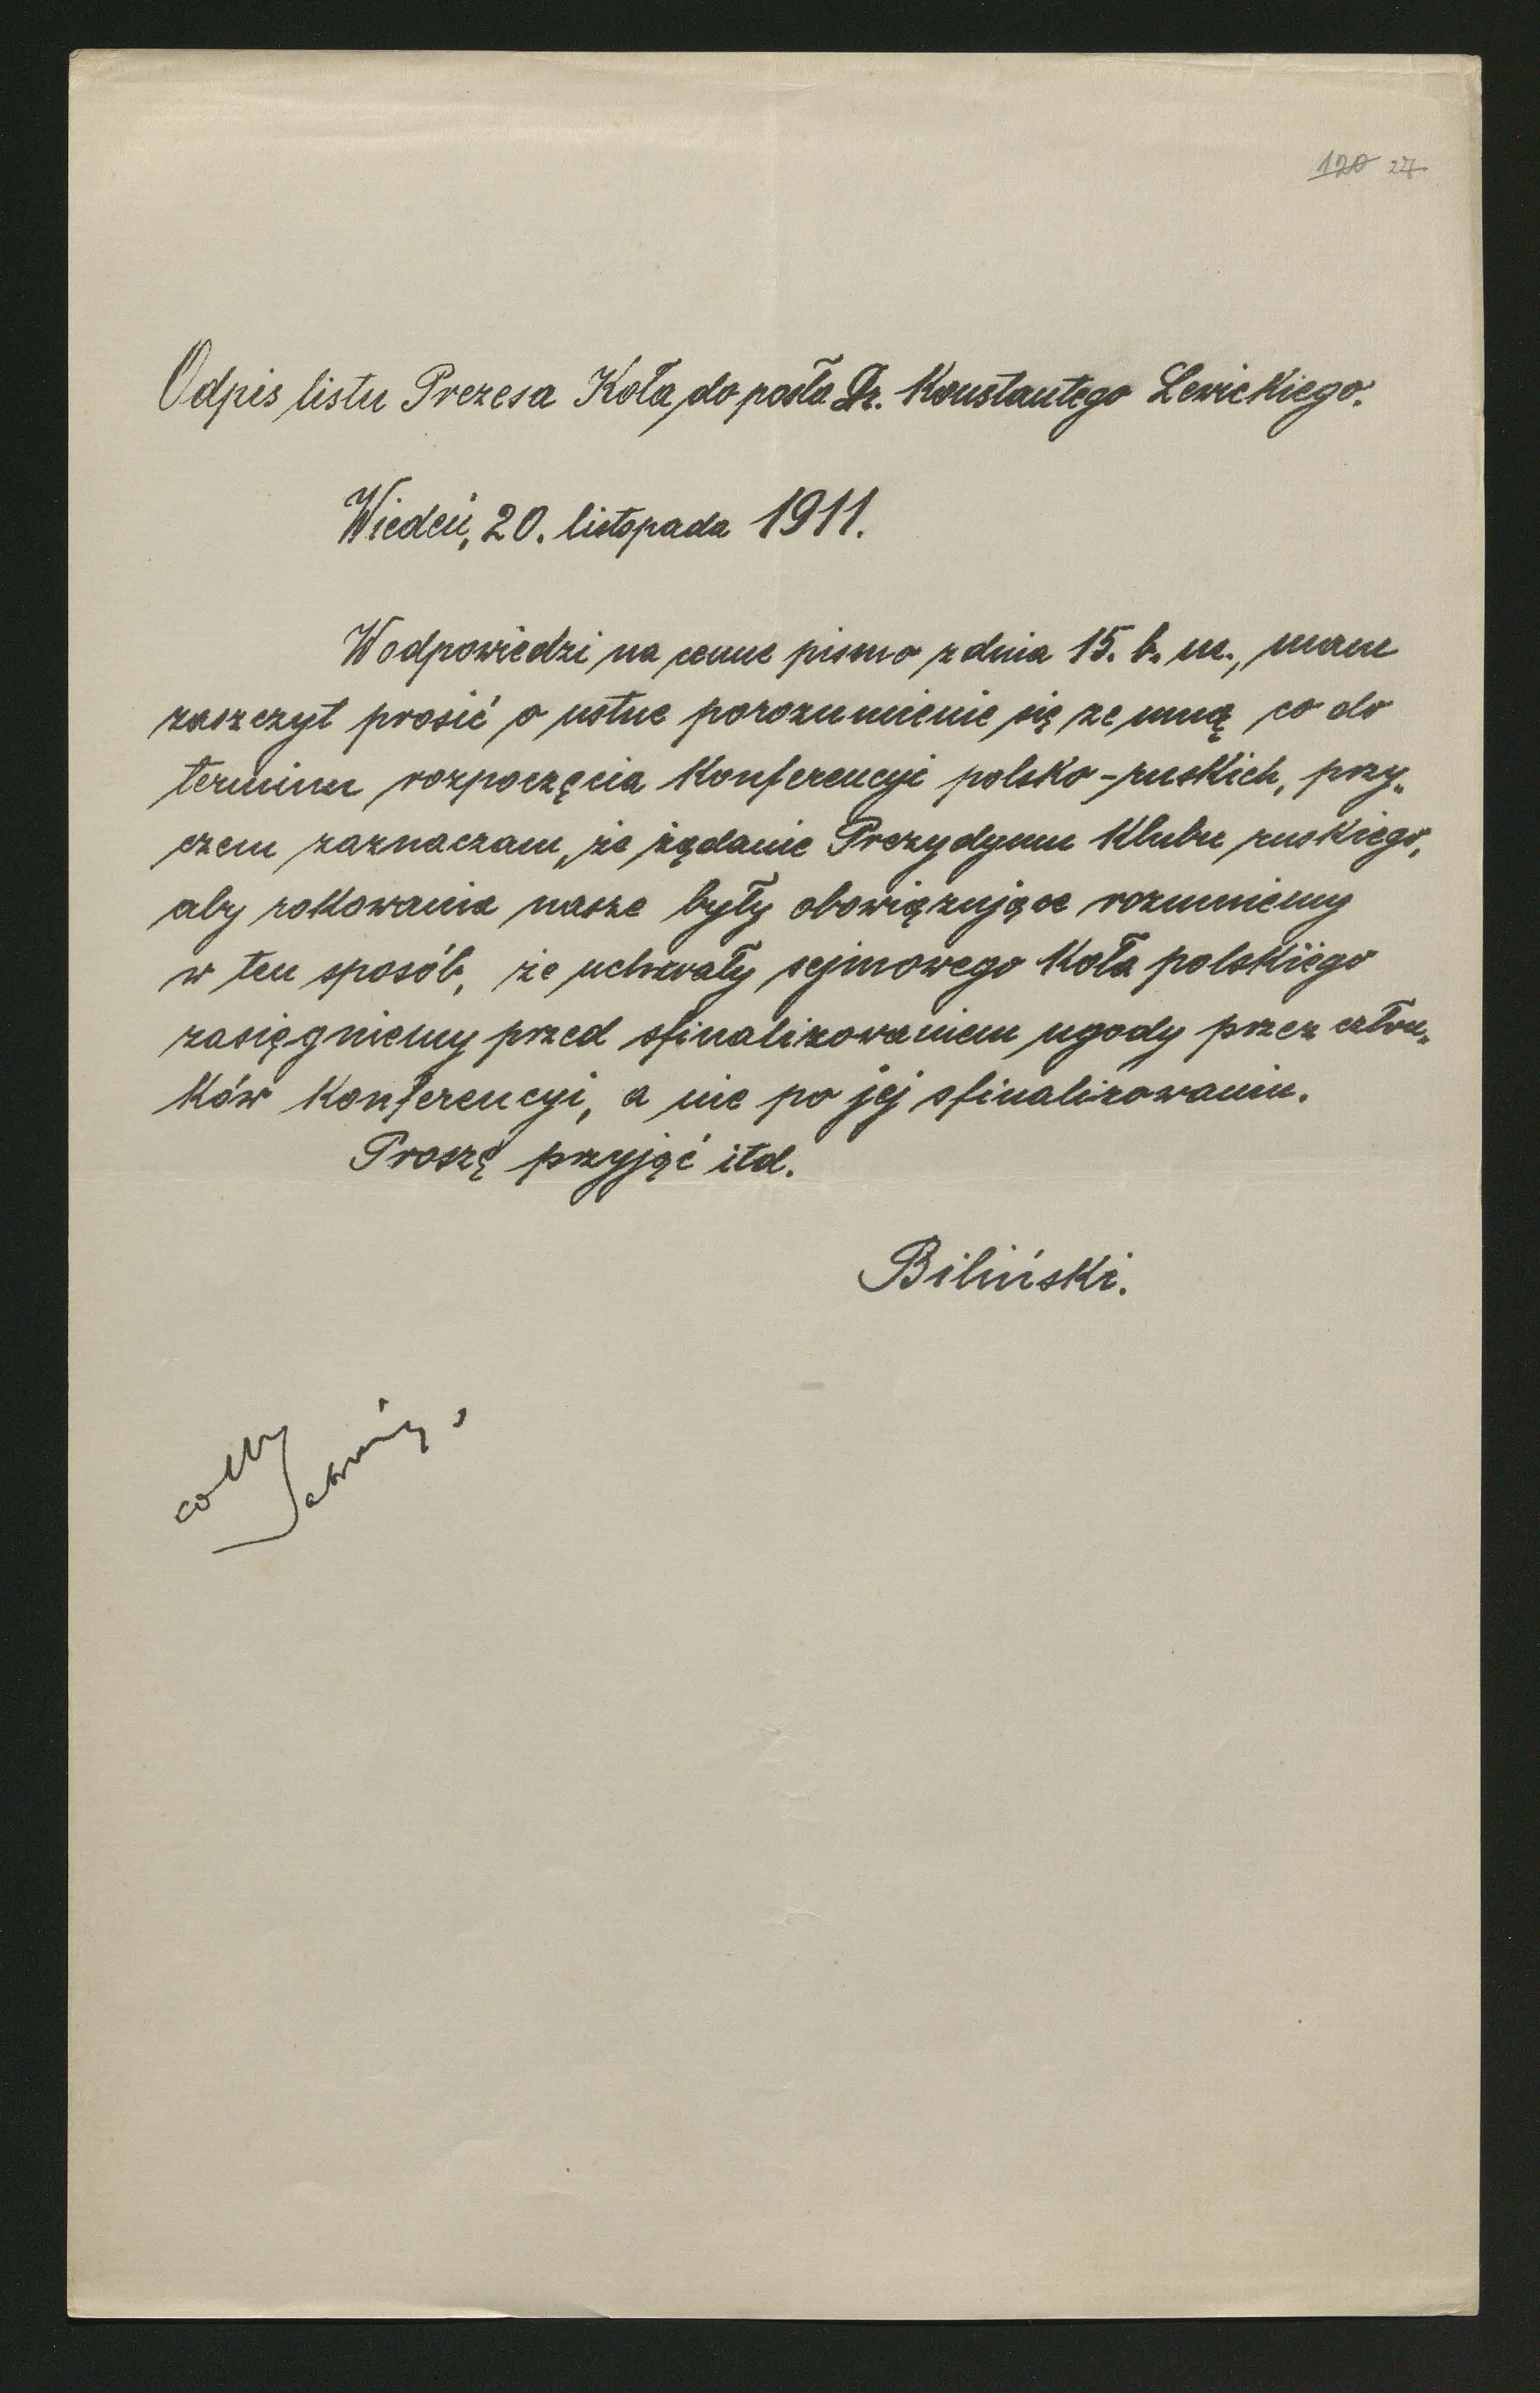 120 27
Odpis listu Prezesa Koła do posła Dr. Konstantego Lewickiego.
Wiedeń, 20. listopada 1911.
W odpowiedzi na cenne pismo z dnia 15. b. m., mam
zaszczyt prosić o ustne porozumienie się ze mną co do
terminu rozpoczęcia Konferencyi polsko-ruskich, przy„
czem zaznaczam, że żądanie Prezydyum Klubu ruskiego,
aby rokowania nasze były obowiązujące rozumiemy
w ten sposób, że uchwały sejmowego Koła polskiego
zasięgniemy przed sfinalizowaniem ugody przez człon„
ków Konferencyi, a nie po jej sfinalizowaniu.
Proszę przyjąć itd.
Biliński.